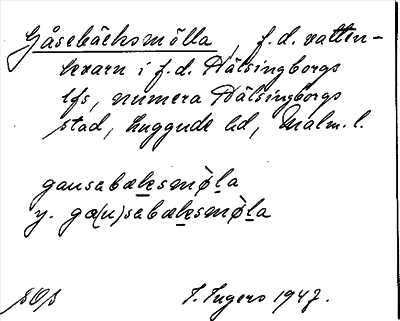 Gåsebäcksmölla, f.d. vatten-
kvarn i f.d. Hälsingborgs
lfs, numera Hälsingborgs
stad, Luggude hd, Malm. l.
gausabæksmø̀la
y. gæ(u)sabæksmø̀la
sOs
I. Ingers 1947.